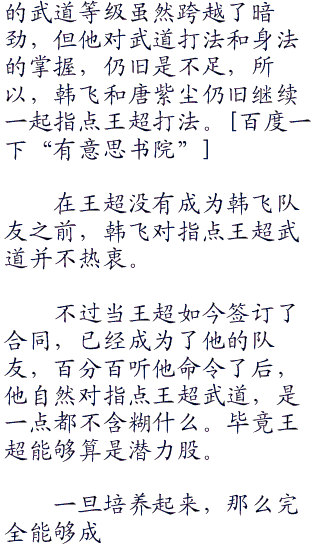 的武道等级虽然跨越了暗
劲，但他对武道打法和身法
的掌握，仍旧是不足，所
以，韩飞和唐紫尘仍旧继续
一起指点王超打法。[百度一
下“有意思书院”]
在王超没有成为韩飞队
友之前，韩飞对指点王超武
道并不热衷。
不过当王超如今签订了
合同，已经成为了他的队
友，百分百听他命令了后，
他自然对指点王超武道，是
一点都不含糊什么。毕竟王
超能够算是潜力股。
一旦培养起来，那么完
全能够成